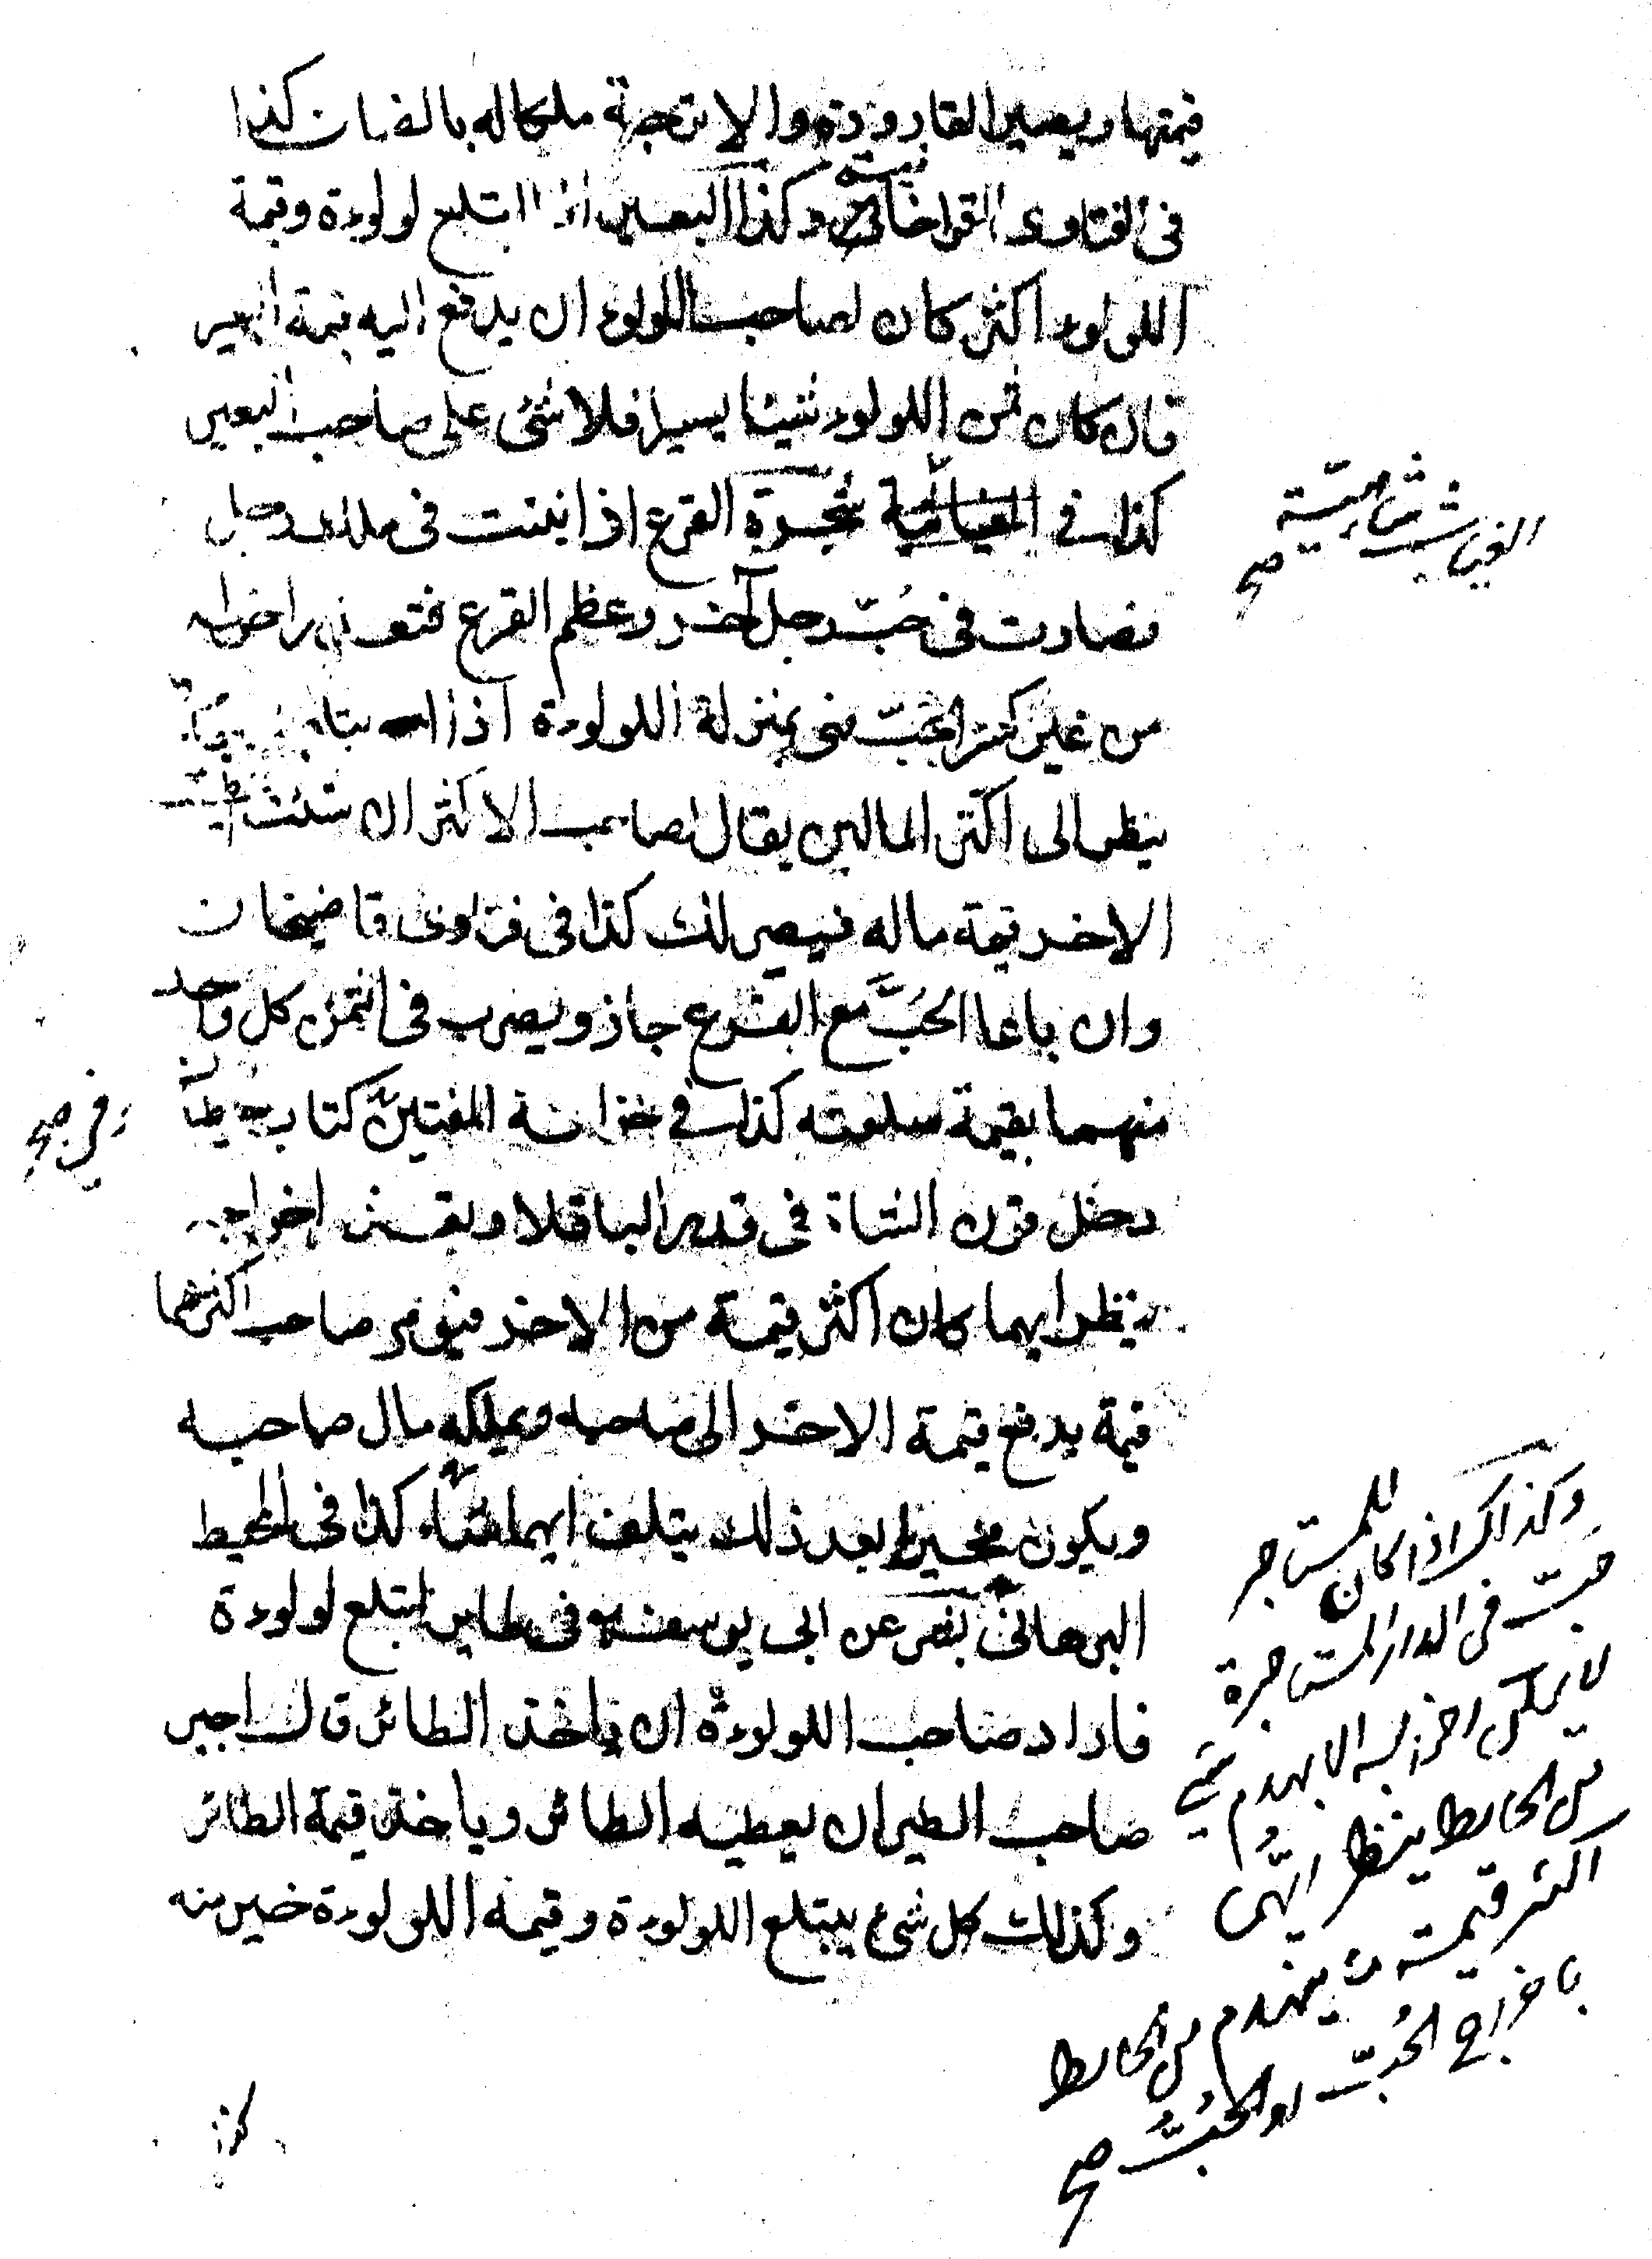 قيمتها ويصير القارورة والاترجة ملكا له بالضمان كذا
فى الفتاوى القواخانى وكذا البعير اذا ابتلع لولوءة وقيمة
اللولوء اكثر كان لصاحب اللولوء ان يدفع اليه قيمة البعير
فان كان ثمن اللولوء شيئا يسيرا فلا شئ على صاحب البعير
كذا فى شجرة القرع اذا نبتت فى ملك رجل
فصارت فى حُبّ رجل آخر وعظم القرع فتعذر اخراجه
من غير كسر الحبّ فهى بمنزلة اللولوءة اذا
ينظر الى اكثر المالين يقال لصاحب الاكثر ان شئت
الاخر قيمة ماله فيصير لك كذا فى فتاوى قاضيخان
وان باعا الحُبَّ مع القرع جاز ويضرب فى الثمن كل واحد
منهما بقيمة سلعته كذا فى خزانة المفتين كتاب
دخل قرن الشاة فى قدر الباقلا وتعذر اخراجه
ينظر ايهما كان اكثر قيمة من الاخر فيومر صاحب اكثرهما
قيمة بدفع قيمة الاخر الى صاحبه ويملكه مال صاحبه
ويكون مخيرا بعد ذلك يتلف ايهما شاء كذا فى المحيط
البرهانى بفر عن ابى يوسف فى طاير ابتلع لولوءة
فاراد صاحب اللولوءة ان ياخذ الطائر قال اجبر
صاحب الطير ان يعطيه الطائر وياخذ قيمة الطائر
وكذلك كل شئ يبتلع اللولوءة وقيمة اللولوءة خير منه
الغياثية صح
صح
وكذلك اذا كان للمستاجر
حبّ فى الدار المستاجرة
لا يمكن اخراجه الا بهدم شئ
من الحائط ينظر ايّهما
اكثر قيمة ما ينهدم من الحائط
باخراج الحُبّ او الحُبُّ صح
كذا